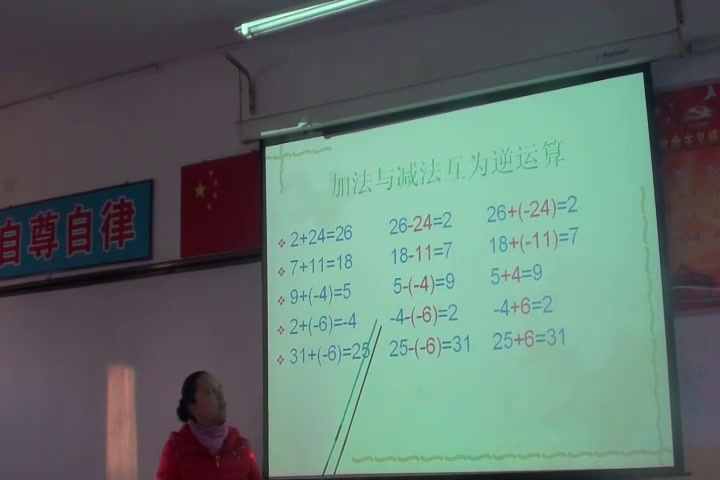 自尊自律
加法与减法互为逆运算
2+24=26 26-24=2 26+(-24)=2
7+11=18 18-11=7 18+(-11)=7
9+(-4)=5 5-(-4)=9 5+4=9
2+(-6)=-4 -4-(-6)=2 -4+6=2
31+(-6)=25 25-(-6)=31 25+6=31